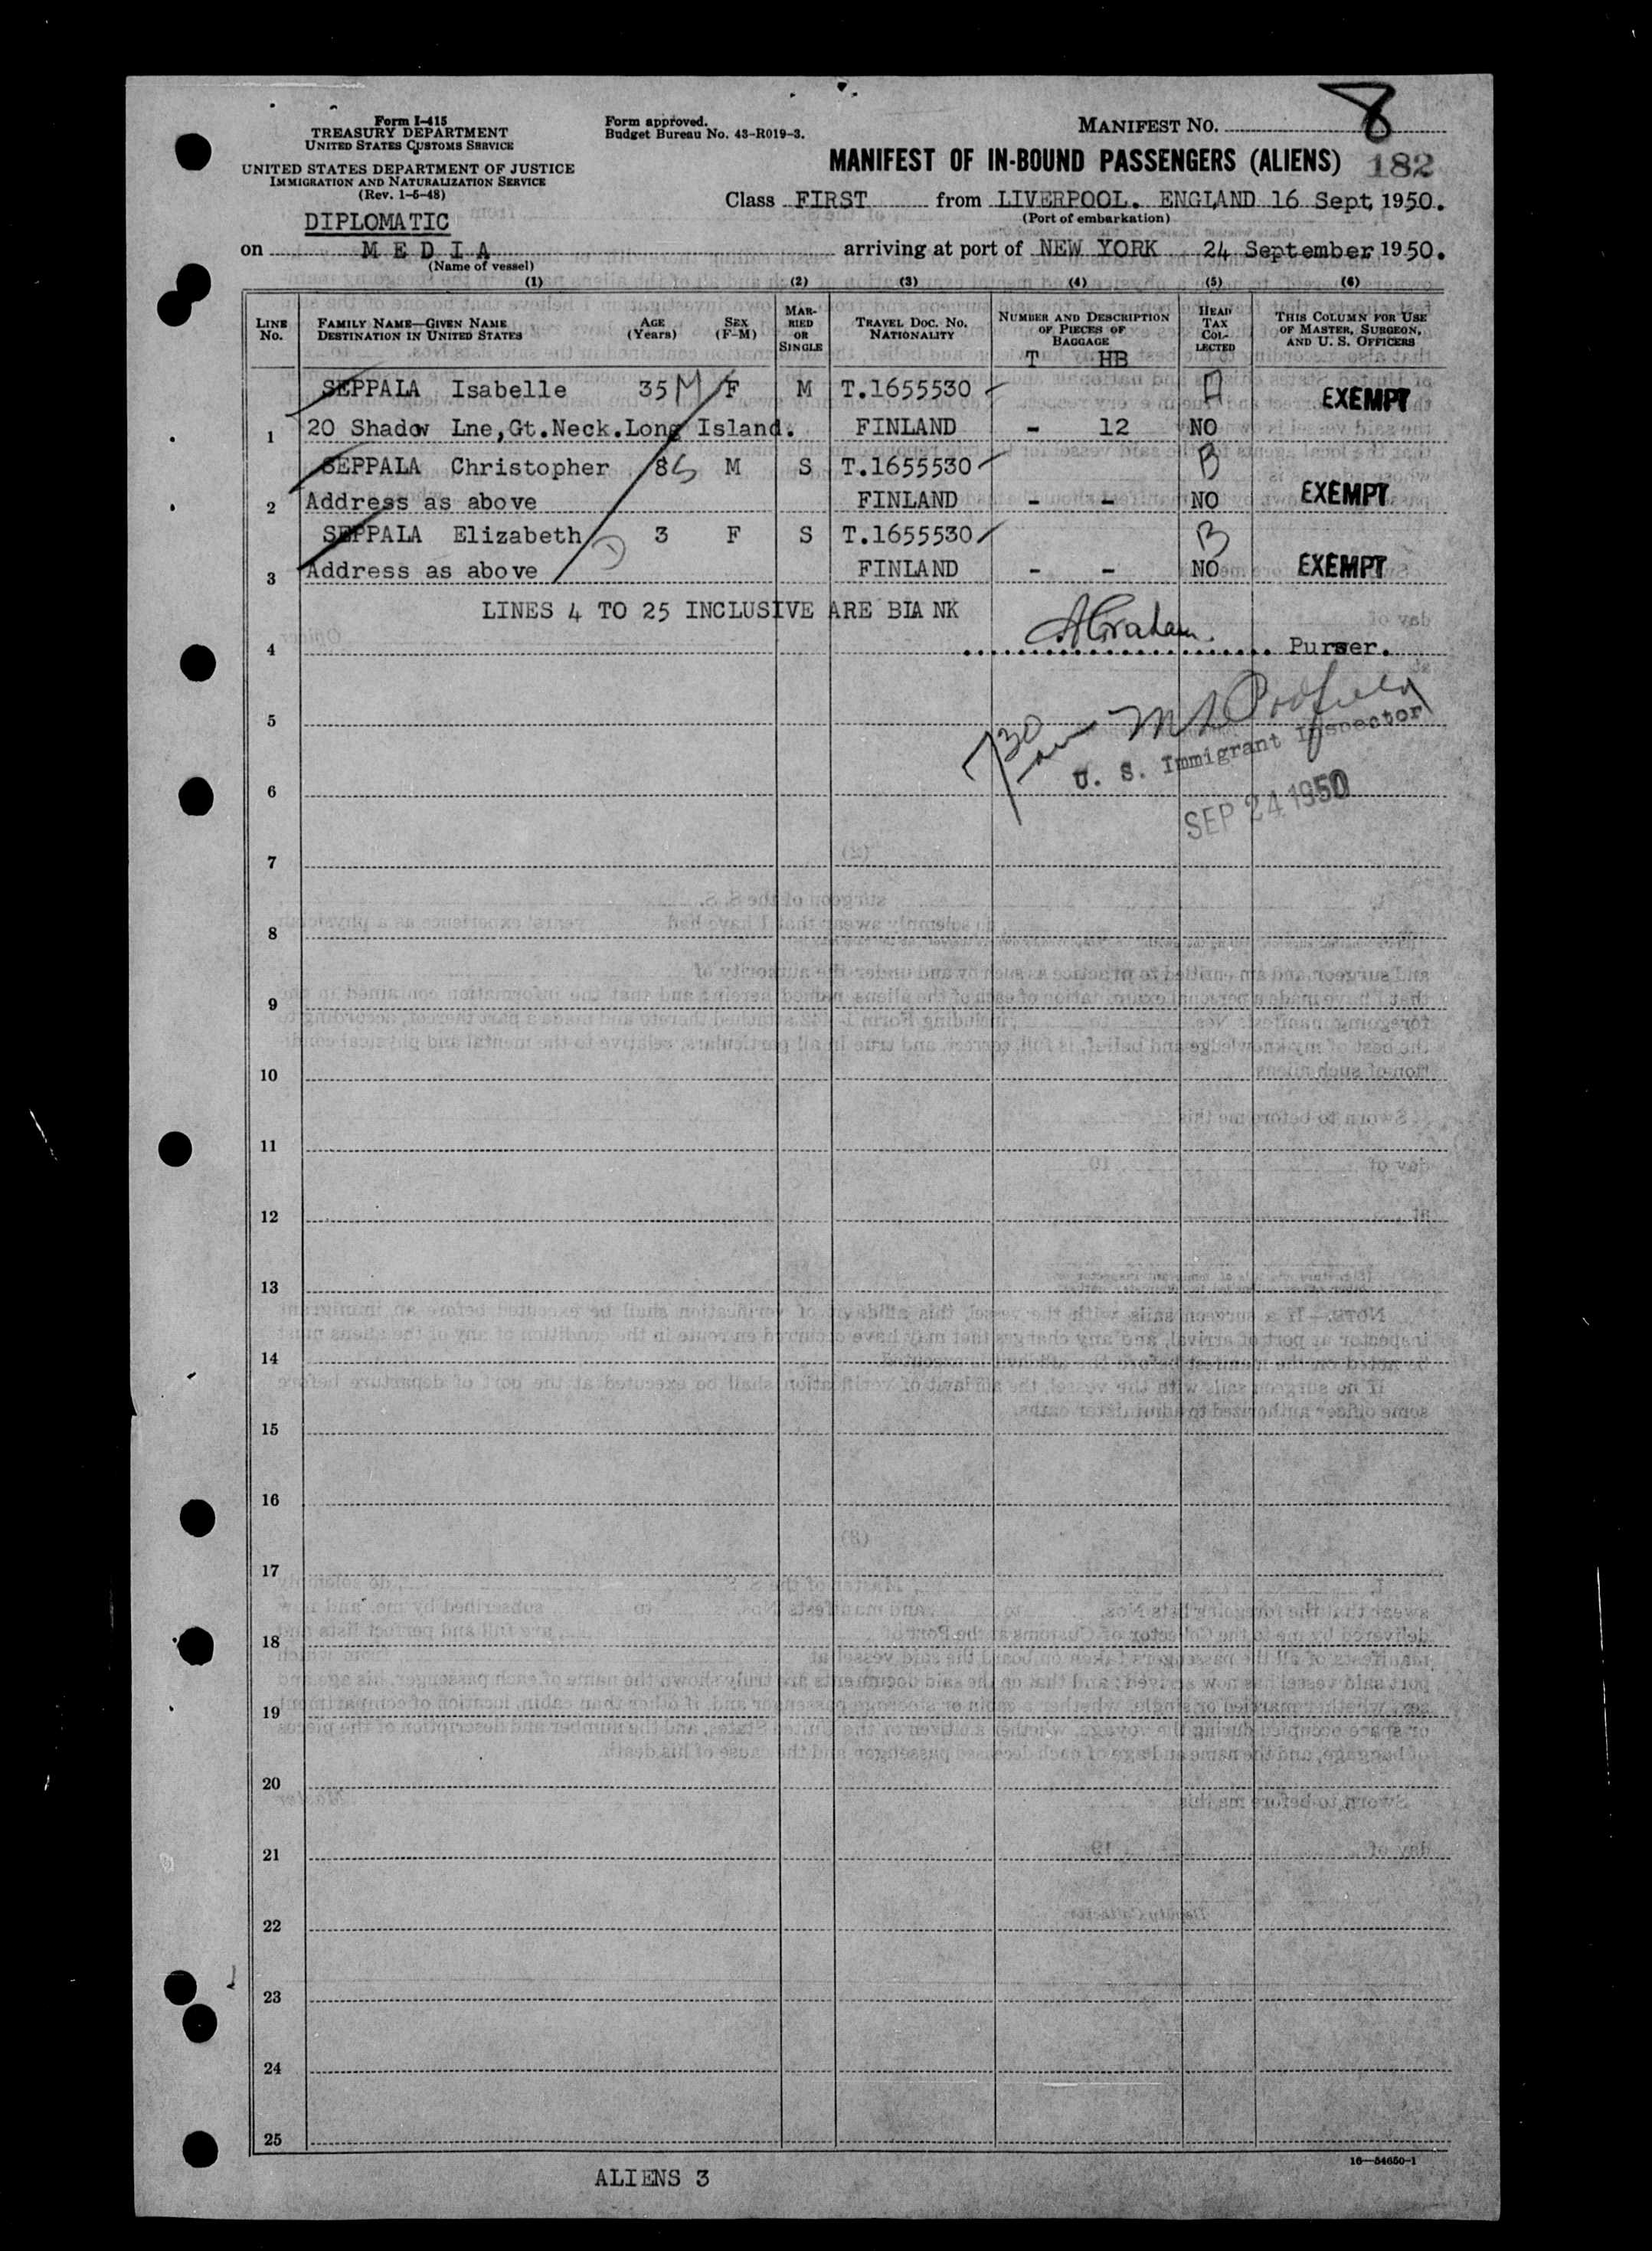 Form I-415
TREASURY DEPARTMENT
UNITED STATES CUSTOMS SERVICE
UNITED STATES DEPARTMENT OF JUSTICE
IMMIGRATION AND NATURALIZATION SERVICE
(Rev. 1-5-48)
Form approved.
Budget Bureau No. 43-R019-3.
MANIFEST NO. 8
MANIFEST OF IN-BOUND PASSENGERS (ALIENS) 182
Class FIRST from LIVERPOOL. ENGLAND 16 Sept, 1950.
(Port of embarkation)
DIPLOMATIC
on M E D I A arriving at port of NEW YORK 24 September 1950.
(Name of vessel)
(1) (2) (3) (4) (5) (6)
LINE NO. FAMILY NAME—GIVEN NAME DESTINATION IN UNITED STATES AGE (Years) SEX (F-M) MARRIED OR SINGLE TRAVEL DOC. NO. NATIONALITY NUMBER AND DESCRIPTION OF PIECES OF BAGGAGE HEAD TAX COLLECTED THIS COLUMN FOR USE OF MASTER, SURGEON, AND U. S. OFFICERS
T HB
SEPPALA Isabelle 35 M F M T.1655530 A EXEMPT
1 20 Shadow Lne,Gt.Neck.Long Island. FINLAND - 12 NO
SEPPALA Christopher 8 S M S T.1655530 B
2 Address as above FINLAND - - NO EXEMPT
SEPPALA Elizabeth 3 F S T.1655530 B
3 Address as above FINLAND - - NO EXEMPT
LINES 4 TO 25 INCLUSIVE ARE BLA NK
AGraham.
4 Purser.
5
730 am
U. S. Immigrant Inspector
6
SEP 24 1950
7
8
9
10
11
12
13
14
15
16
17
18
19
20
21
22
23
24
25
16—54650-1
ALIENS 3